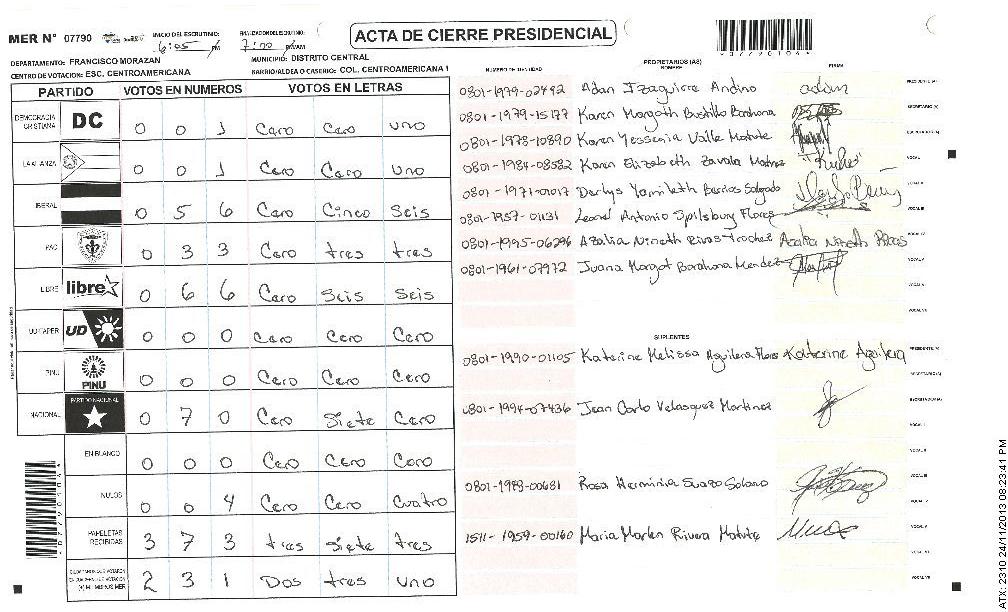 ACTA DE CIERRE PRESIDENCIAL
MER N° 07790
INICIO DEL ESCRUTINIO:
6:05 PM
FINALIZACION DEL ESCRUTINIO:
7:00 PM/AM
DEPARTAMENTO: FRANCISCO MORAZAN
MUNICIPIO: DISTRITO CENTRAL
CENTRO DE VOTACION: ESC. CENTROAMERICANA
BARRIO/ALDEA O CASERIO: COL. CENTROAMERICANA 1
PARTIDO VOTOS EN NUMEROS VOTOS EN LETRAS
DEMOCRACIA CRISTIANA DC 0 0 1 Cero Cero uno
LA ALIANZA 0 0 1 Cero Cero Uno
LIBERAL 0 5 6 Cero Cinco Seis
PAC 0 3 3 Cero tres tres
LIBRE libre 0 6 6 Cero Seis Seis
UD FAPER UD 0 0 0 Cero Cero Cero
PINU PINU 0 0 0 Cero Cero Cero
NACIONAL PARTIDO NACIONAL 0 7 0 Cero Siete Cero
EN BLANCO 0 0 0 Cero Cero Cero
NULOS 0 0 4 Cero Cero Cuatro
PAPELETAS RECIBIDAS 3 7 3 tres Siete tres
2 3 1 Dos tres uno
NUMERO DE IDENTIDAD
PROPIETARIOS (AS)
NOMBRE
FIRMA
0801-1979-02492 Adan Izaguirre Andino adan PRESIDENTE (A)
0801-1979-15177 Karen Margoth Bustillo Barahona SECRETARIO (A)
0801-1978-10890 Karen Yessenia Valle Matute
0801-1984-08582 Karen Elizabeth Zavala VOCAL I
0801-1971-01017 Derlys Yamileth Barrios Salgado
0801-1957-01131 Leonel Antonio Spilsbury Flores VOCAL III
0801-1995-06296 Azalia Nineth Rivas Azalia Nineth Rivas
0801-1961-07972 Juana Margot Barahona Mendez VOCAL V
SUPLENTES
0801-1990-01105 Katerine Melissa Aguilera Flores Katherine Aguilera PRESIDENTE (A)
SECRETARIO (A)
0801-1994-07436 Jean Carlo Velasquez Martinez
0801-1973-00681 Rosa Herminia Suazo Solano VOCAL III
1511-1959-00160 Maria Marlen Rivera Matute
ATX: 2310 24/11/2013 08:23:41 PM